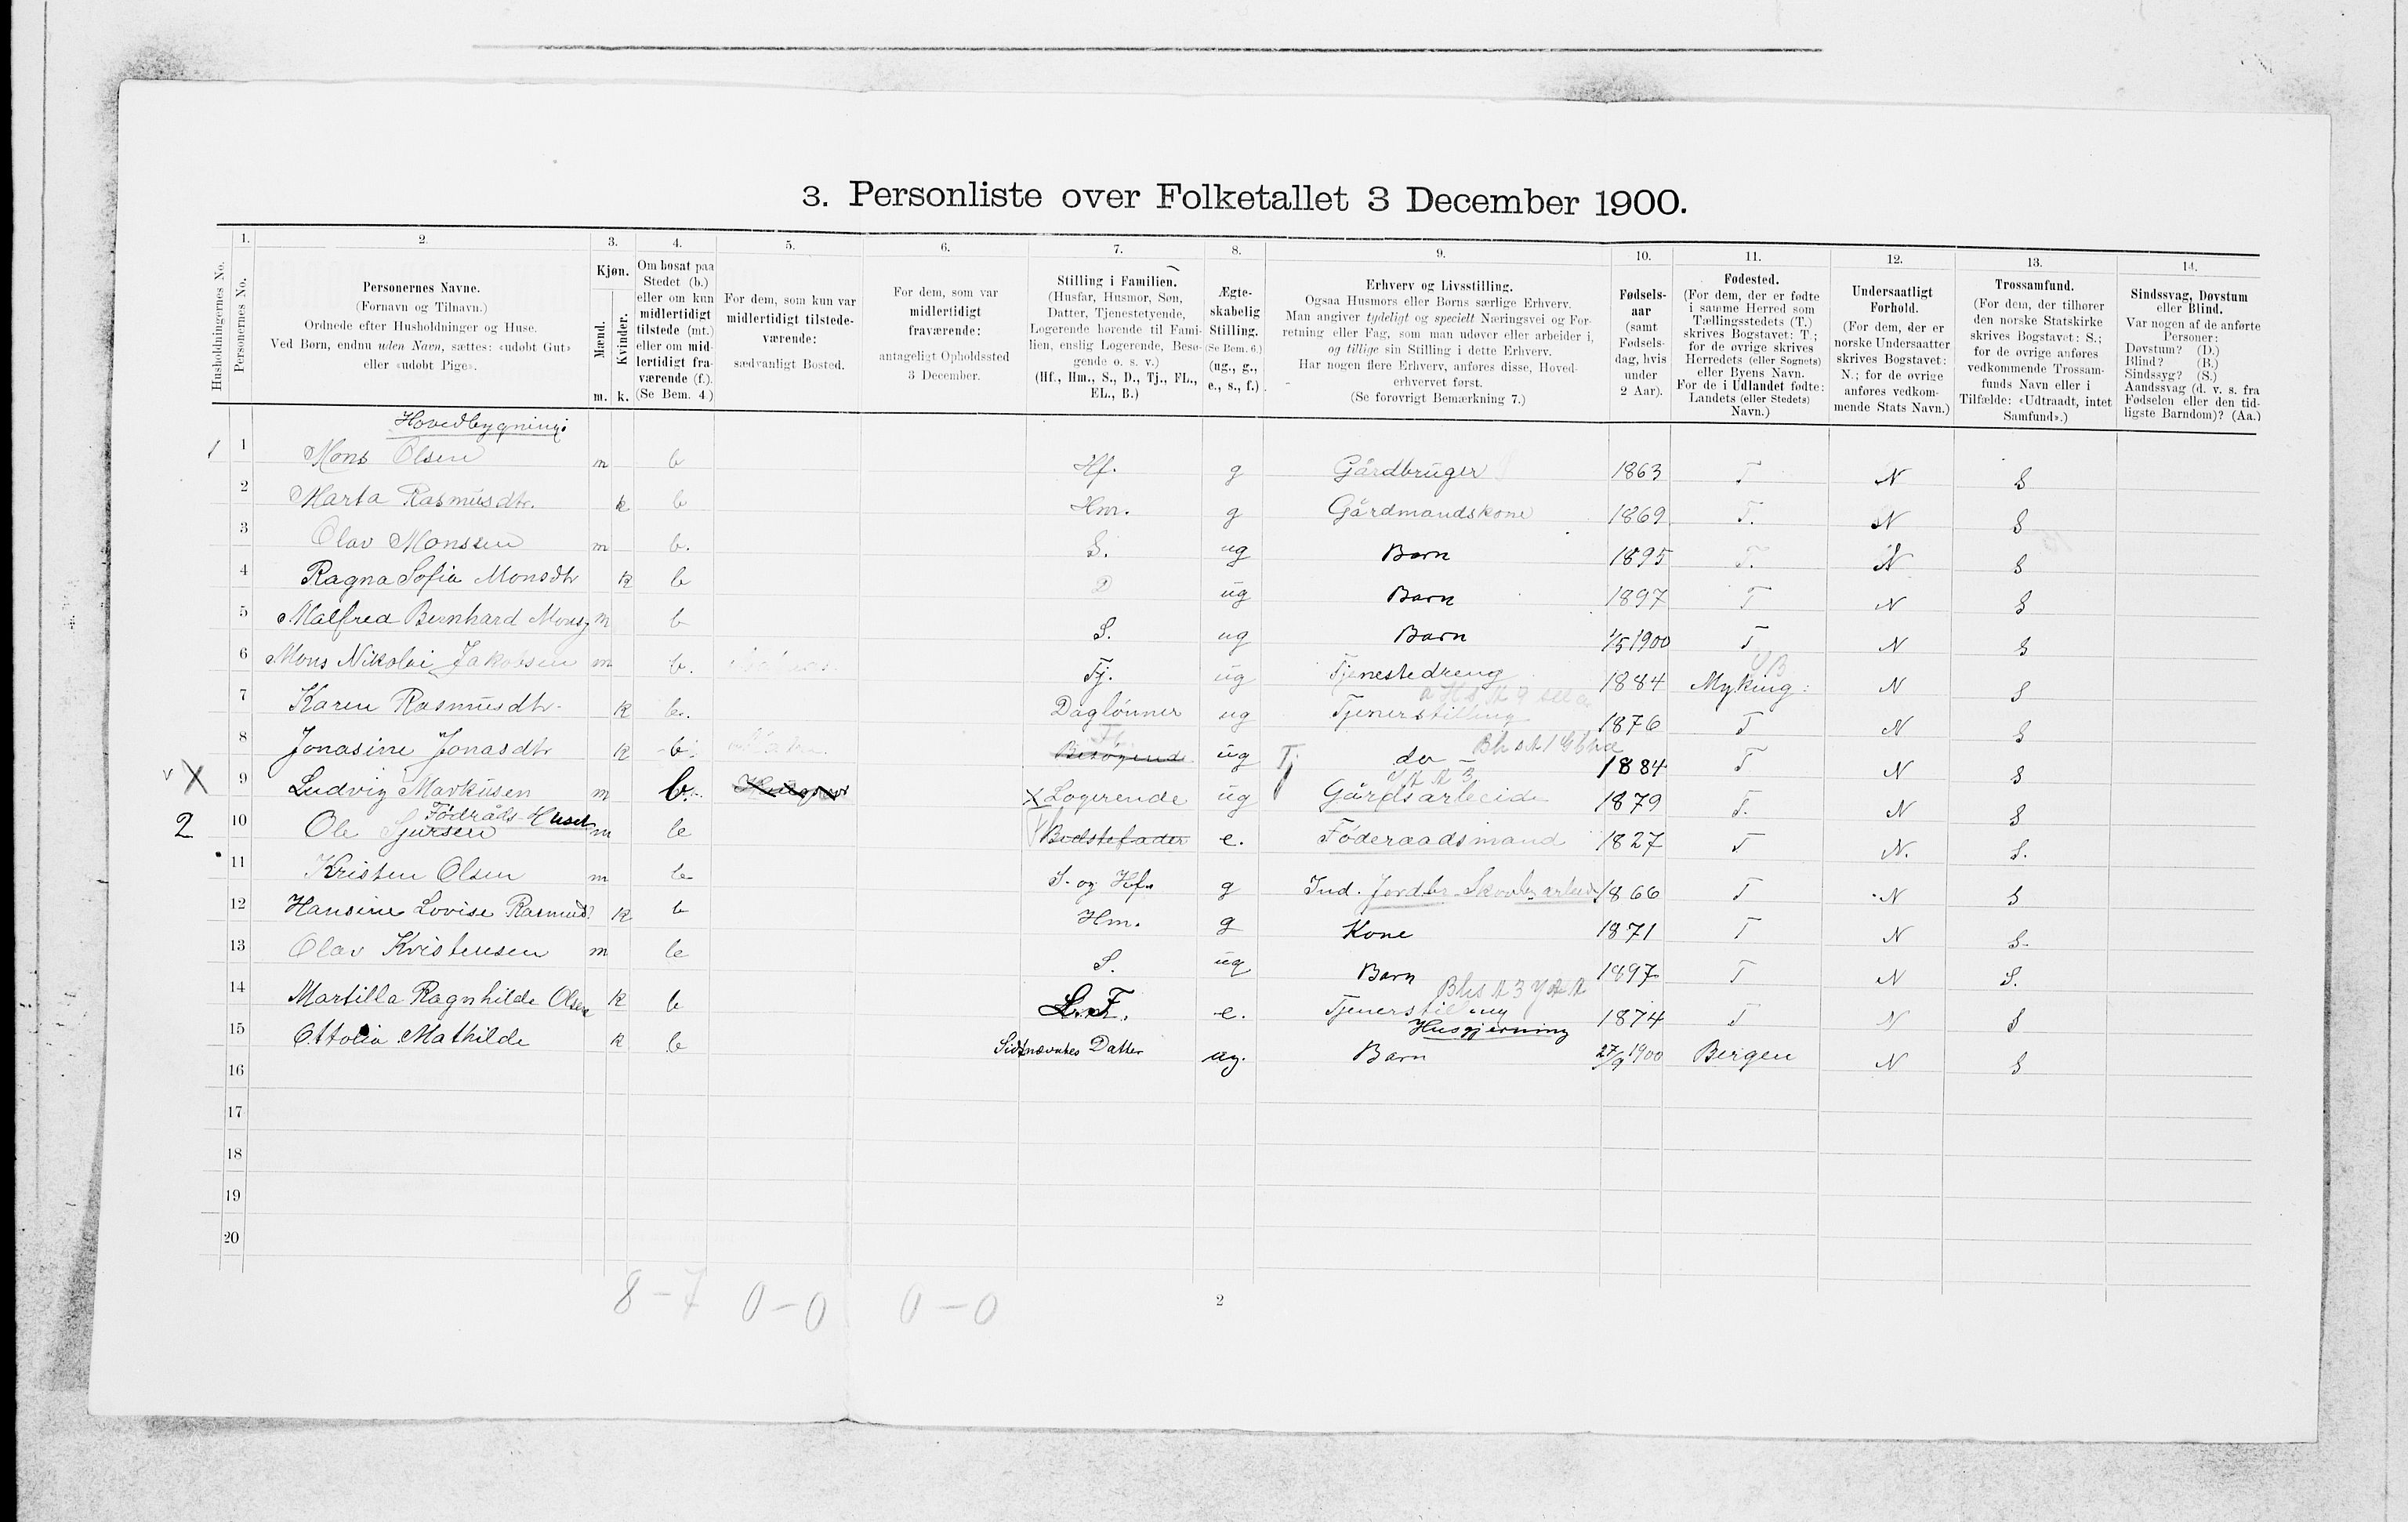 3. Personliste over Folketallet 3 December 1900.
1. 2. 3. 4. 5. 6. 7. 8. 9. 10. 11. 12. 13. 14.
Husholdningernes No.
Personernes No.
Personernes Navne.
(Fornavn og Tilnavn.)
Ordnede efter Husholdninger og Huse.
Ved Børn, endnu uden Navn, sættes: «udøbt Gut»
eller «udøbt Pige».
Kjøn.
Mænd.
Kvinder.
m. k.
Om bosat paa
Stedet (b.)
eller om kun
midlertidigt
tilstede (mt.)
eller om mid-
lertidigt fra-
værende (f.).
(Se Bem. 4.)
For dem, som kun var
midlertidigt tilstede-
værende:
sædvanligt Bosted.
For dem, som var
midlertidigt
fraværende:
antageligt Opholdssted
3 December.
Stilling i Familien.
(Husfar, Husmor, Søn,
Datter, Tjenestetyende,
Logerende hørende til Fami-
lien, enslig Logerende, Besø-
gende o. s. v.)
(Hf., Hm., S., D., Tj., FL.,
EL., B.)
Ægte-
skabelig
Stilling.
(Se Bem. 6.)
(ug., g.,
e., s., f.)
Erhverv og Livsstilling.
Ogsaa Husmors eller Børns særlige Erhverv.
Man angiver tydeligt og specielt Næringsvei og For-
retning eller Fag, som man udøver eller arbeider i,
og tillige sin Stilling i dette Erhverv.
Har nogen flere Erhverv, anføres disse, Hoved-
erhvervet først.
(Se forøvrigt Bemærkning 7.)
Fødsels-
aar
(samt
Fødsels-
dag, hvis
under
2 Aar).
Fødested.
(For dem, der er fødte
i samme Herred som
Tællingsstedets (T.)
skrives Bogstavet: T.;
for de øvrige skrives
Herredets (eller Sognets)
eller Byens Navn.
For de i Udlandet fødte:
Landets (eller Stedets)
Navn.)
Undersaatligt
Forhold.
(For dem, der er
norske Undersaatter
skrives Bogstavet:
N.; for de øvrige
anføres vedkom-
mende Stats Navn.)
Trossamfund.
(For dem, der tilhører
den norske Statskirke
skrives Bogstavet: S.;
for de øvrige anføres
vedkommende Trossam-
funds Navn eller i
Tilfælde: «Udtraadt, intet
Samfund».)
Sindssvag, Døvstum
eller Blind.
Var nogen af de anførte
Personer:
Døvstum? (D.)
Blind? (B.)
Sindssyg? (S.)
Aandssvag (d. v. s. fra
Fødselen eller den tid-
ligste Barndom)? (Aa.)
Hovedbygning:
1 1 Mons Olsen m b Hf. g Gårdbruger 1863 T N S
2 Marta Rasmusdtr. k b Hm. g Gårdmandskone 1869 T. N S
3 Olav Monssen m b. S. ug Barn 1895 T. N S
4 Ragna Sofia Monsdtr k b D ug Barn 1897 T N S
5 Malfred Bernhard Mons m b S. ug Barn 1/5 1900 T N S
6 Mons Nikolai Jakobsen m b. Tj. ug Tjenestedreng 1884 Myking: N S
7 Karen Rasmusdtr. k b. Daglønner ug Tjenerstilling 1876 T N S
8 Jonasine Jonasdtr k b. Besøgend ug Tj do 1884 T N S
X 9 Ludvig Markusen m b. X Logerende ug Gårdsarbeide 1879 T. N S
Fødråds-Huset
2 10 Ole Sjursen m b Bedstefader e. Føderaadsmand 1827 T N. S.
11 Kristen Olsen m b S. og Hf. g Ind. Jordbr. 1866 T N S
12 Hansine Lovise Rasmusd. k b Hm. g Kone 1871 T N S.
13 Olav Kristensen m b S. ug Barn 1897 T N S.
14 Martilla Ragnhilde Olsen k b e. Tjenerstilling 1874 T N S
Husgjerning
15 Ottolia Mathilde k b Sidstnævntes Datter ug. Barn 27/9 1900 Bergen N S
16
17
18
19
20
8 - 7 0 - 0 0 - 0
2